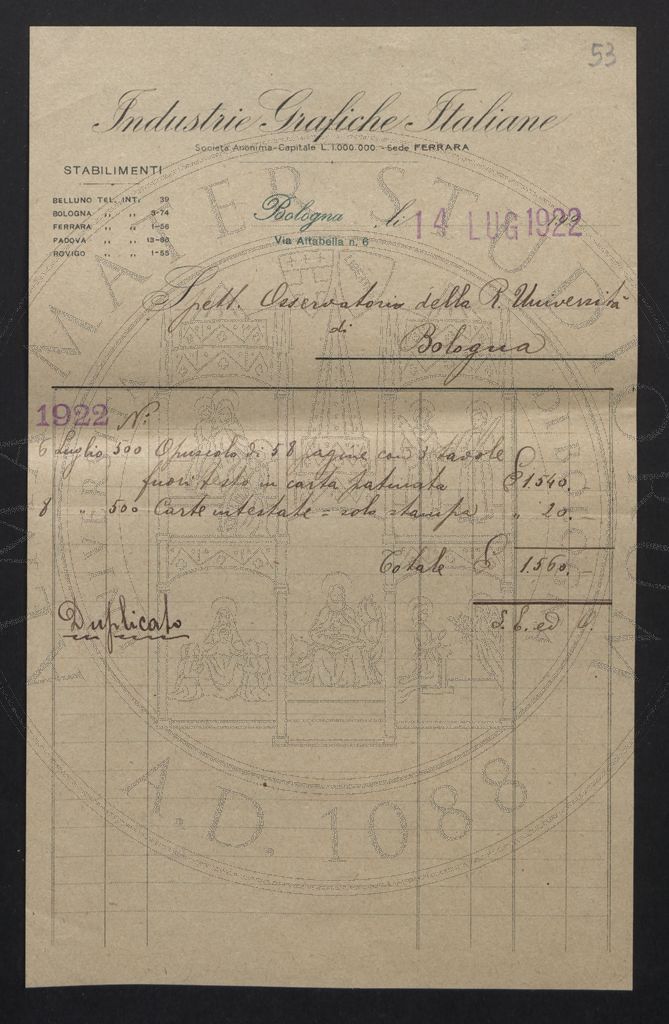 53
Industrie Grafiche Italiane
Società Anonima - Capitale L. 1.000.000 - Sede FERRARA
STABILIMENTI
BELLUNO TEL. INT. 39
BOLOGNA „ „ 3-74
FERRARA „ „ 1-56
PADOVA „ „ 13-80
ROVIGO „ „ 1-55
Bologna li 14 LUG 1922
Via Altabella n. 6
Spett. Osservatorio della R. Università
di
Bologna
1922 N.
6 Luglio 500 Opuscolo di 58 pagine con 3 tavole
fuori testo in carta patinata £ 1.540.
8 „ 500 Carte intestate = solo stampa „ 20.
Totale £ 1.560.
S. E. ed O.
Duplicato
ALMA MATER STUDIORUM
A.D. 1088